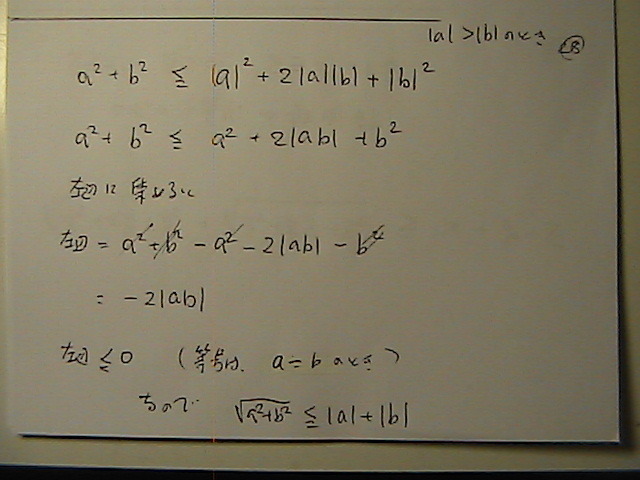 |a| > |b| のとき ㉘
a² + b² ≦ |a|² + 2|a||b| + |b|²
a² + b² ≦ a² + 2|ab| + b²
左辺に集めると
左辺 = a² + b² - a² - 2|ab| - b²
= - 2|ab|
左辺 ≦ 0 (等号は、 a = b のとき)
なので √(a²+b²) ≦ |a| + |b|